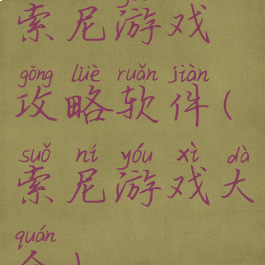 索尼游戏
gōng lüè ruǎn jiàn
攻略软件(
suǒ ní yóu xì dà
索尼游戏大
quán